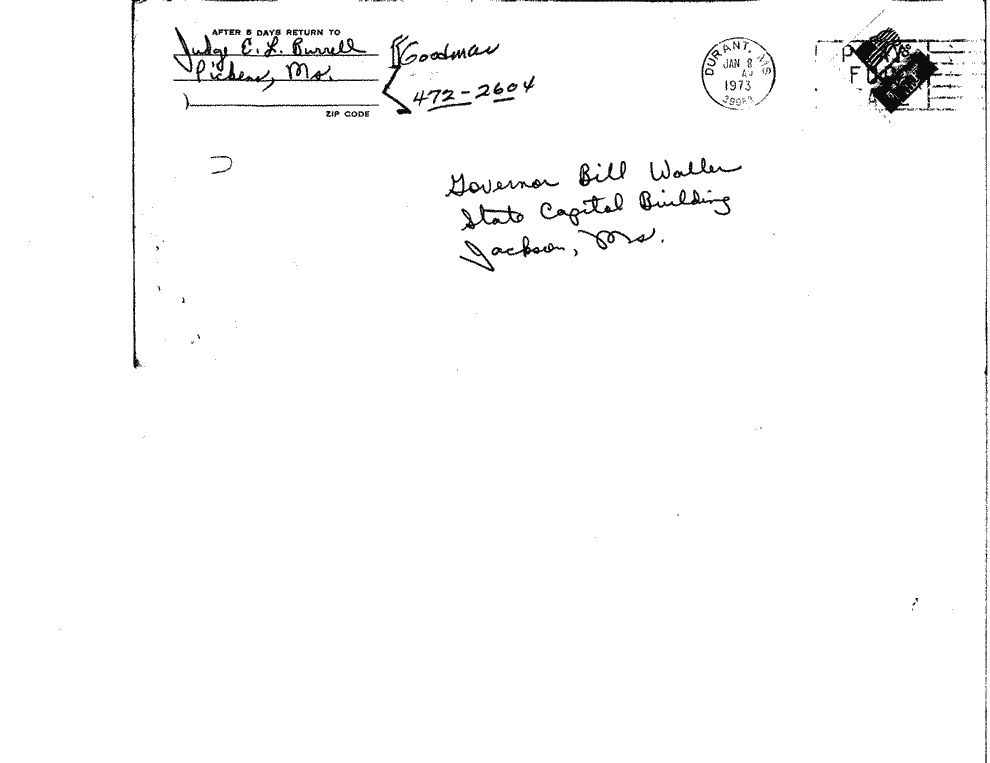 AFTER 5 DAYS RETURN TO
Judge E. L. Burrell
Pickens, Ms.
ZIP CODE
Goodman
472-2604
DURANT, MS
JAN 8
1973
Governor Bill Waller
State Capital Building
Jackson, Ms.